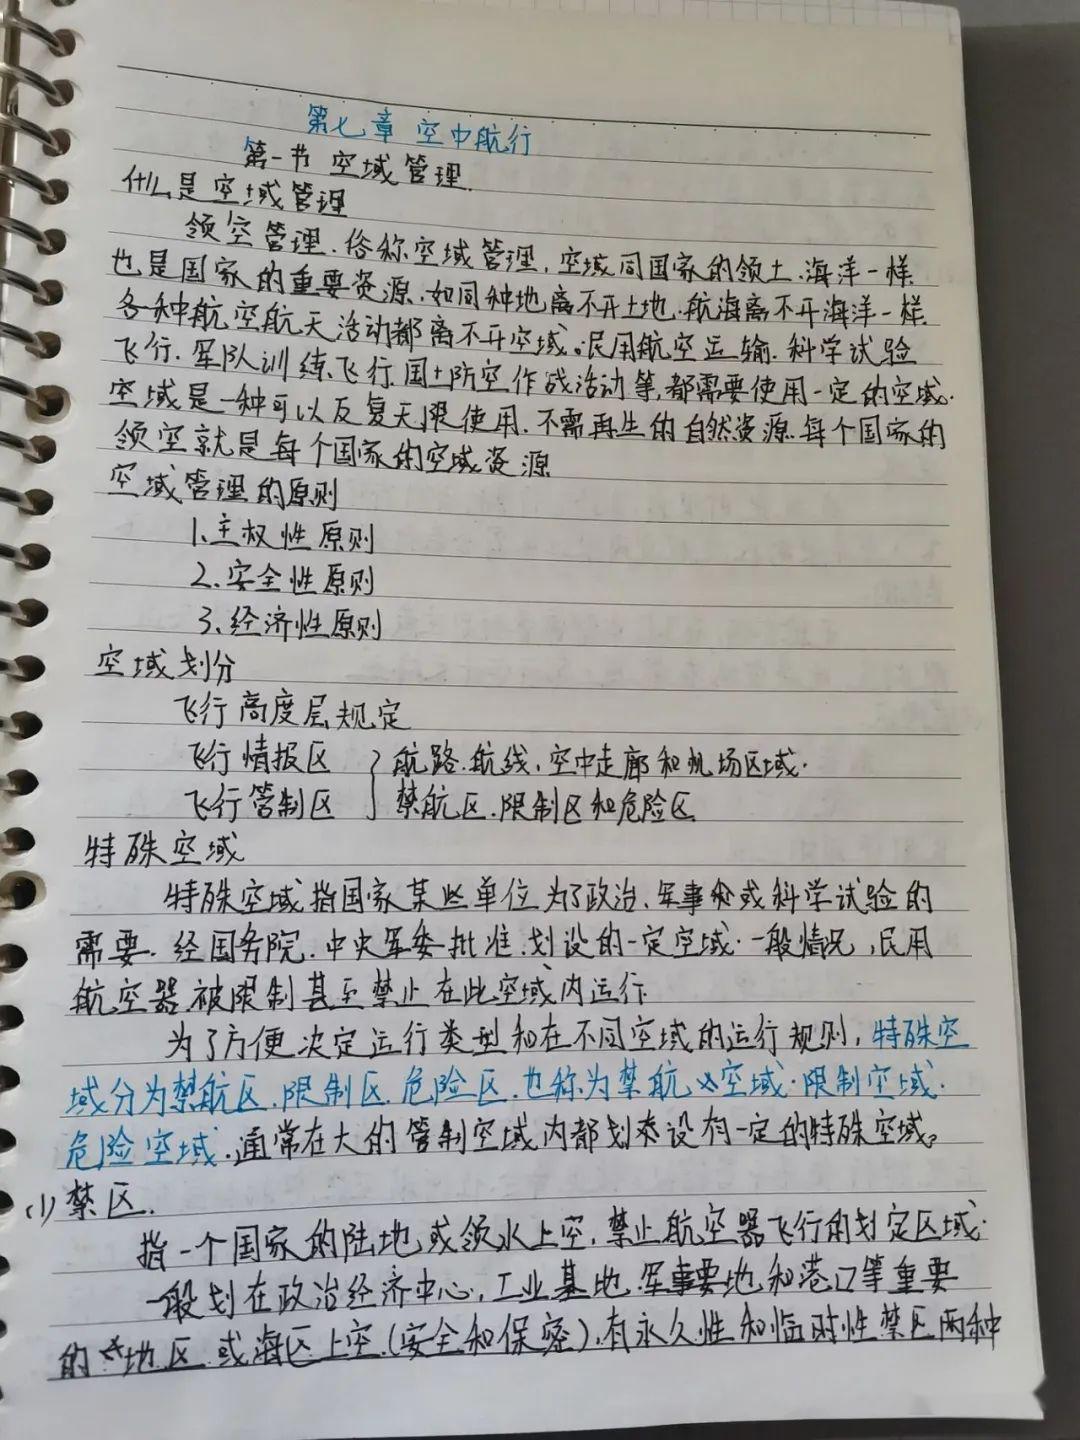 第七章 空中航行
第一节 空域管理.
什么是空域管理
领空管理.俗称空域管理,空域同国家的领土.海洋一样
也是国家的重要资源.如同种地离不开土地.航海离不开海洋一样
各种航空航天活动都离不开空域。民用航空运输.科学试验
飞行.军队训练飞行.国土防空作战活动等,都需要使用一定的空域.
空域是一种可以反复无限使用.不需再生的自然资源.每个国家的
领空就是每个国家的空域资源
空域管理的原则
1.主权性原则
2.安全性原则
3.经济性原则
空域划分
飞行高度层规定
飞行情报区 } 航路.航线,空中走廊和机场区域.
飞行管制区 禁航区.限制区和危险区
特殊空域
特殊空域指国家某些单位为了政治.军事或科学试验的
需要.经国务院.中央军委批准.划设的一定空域.一般情况,民用
航空器被限制甚至禁止在此空域内运行
为了方便决定运行类型和在不同空域的运行规则,特殊空
域分为禁航区.限制区.危险区.也称为禁航空域.限制空域.
危险空域.通常在大的管制空域内都划设有一定的特殊空域。
(1)禁区.
指一个国家的陆地或领水上空,禁止航空器飞行的划定区域.
一般划在政治经济中心,工业基地.军事要地.和港口等重要
的地区或海区上空.(安全和保密).有永久性和临时性禁区两种